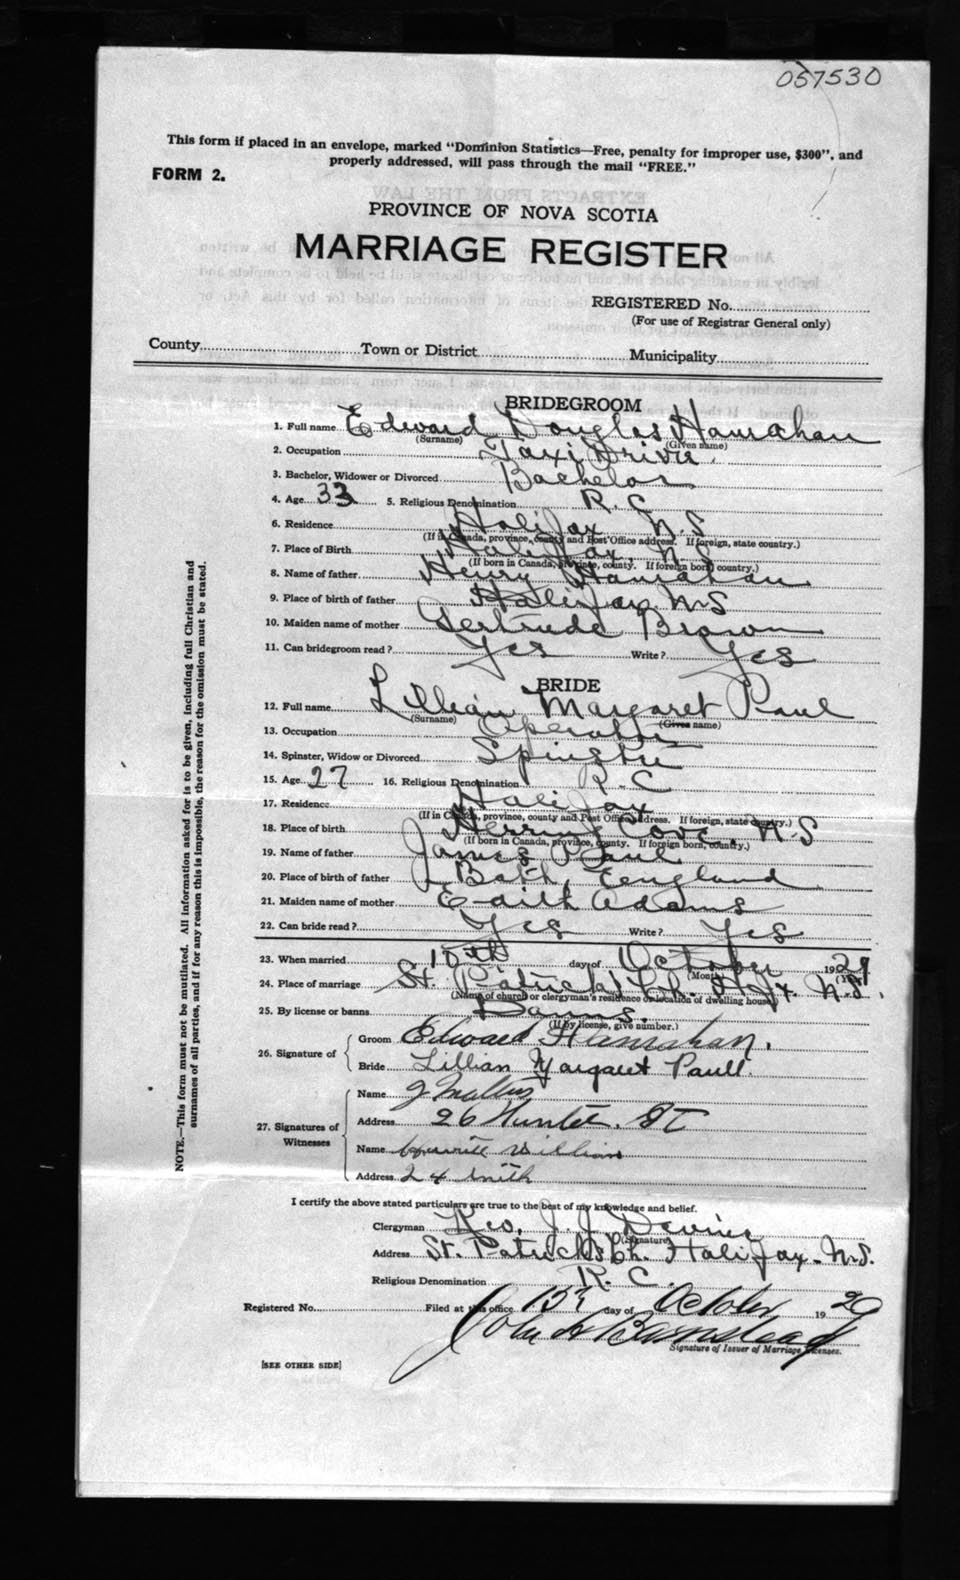 057530
This form if placed in an envelope, marked "Dominion Statistics—Free, penalty for improper use, $300", and
properly addressed, will pass through the mail "FREE."
FORM 2.
PROVINCE OF NOVA SCOTIA
MARRIAGE REGISTER
REGISTERED No.
(For use of Registrar General only)
County Town or District Municipality
BRIDEGROOM
1. Full name Edward Douglas Hanrahan
(Surname) (Given name)
2. Occupation Taxi Driver
3. Bachelor, Widower or Divorced Bachelor
4. Age 33 5. Religious Denomination R. C
6. Residence Halifax N.S
(If in Canada, province, county and Post Office address. If foreign, state country.)
7. Place of Birth Halifax N.S
(If born in Canada, province, county. If foreign born, country.)
8. Name of father Henry Hanrahan
9. Place of birth of father Halifax N.S
10. Maiden name of mother Gertrude Brown
11. Can bridegroom read? Yes Write? Yes
BRIDE
12. Full name Lillian Margaret Paul
(Surname) (Given name)
13. Occupation Operator
14. Spinster, Widow or Divorced Spinster
15. Age 27 16. Religious Denomination R. C
17. Residence Halifax
(If in Canada, province, county and Post Office address. If foreign, state country.)
18. Place of birth Herring Cove, N.S
(If born in Canada, province, county. If foreign born, country.)
19. Name of father James Paul
20. Place of birth of father Bath, England
21. Maiden name of mother Edith Adams
22. Can bride read? Yes Write? Yes
23. When married 15th day of October 1929
(Month) (Year)
24. Place of marriage St. Patrick's Ch. Hfx. N.S.
(Name of church or clergyman's residence or location of dwelling house)
25. By license or banns Banns.
(If by license, give number.)
26. Signature of
Groom Edward Hanrahan.
Bride Lillian Margaret Paull.
27. Signatures of Witnesses
Name J
Address 26 Hunter St
Name William
Address 24 Smith
I certify the above stated particulars are true to the best of my knowledge and belief.
Clergyman Rev. J. J. Devine
(Signature)
Address St. Patrick's Ch. Halifax. N.S.
Religious Denomination R. C.
Registered No. Filed at this office 15 day of October 1929
John H Barnstead
Signature of Issuer of Marriage Licenses.
[SEE OTHER SIDE]
NOTE.—This form must not be mutilated. All information asked for is to be given, including full Christian and
surnames of all parties, and if for any reason this is impossible, the reason for the omission must be stated.